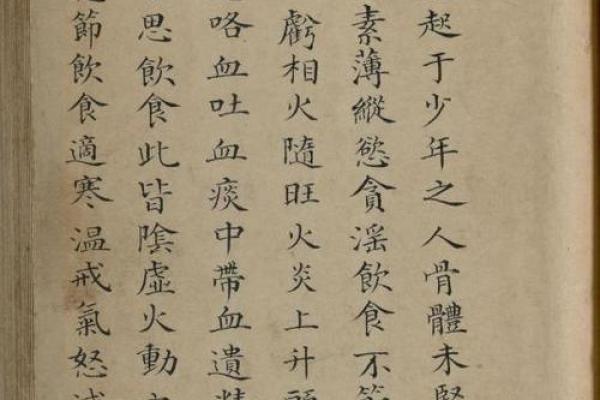 起于少年之人骨體未堅
素薄縱慾貪淫飲食不節
虧相火隨旺火炎上升頭
咯血吐血痰中帶血遺精
思飲食此皆陰虛火動
節飲食適寒温戒氣怒